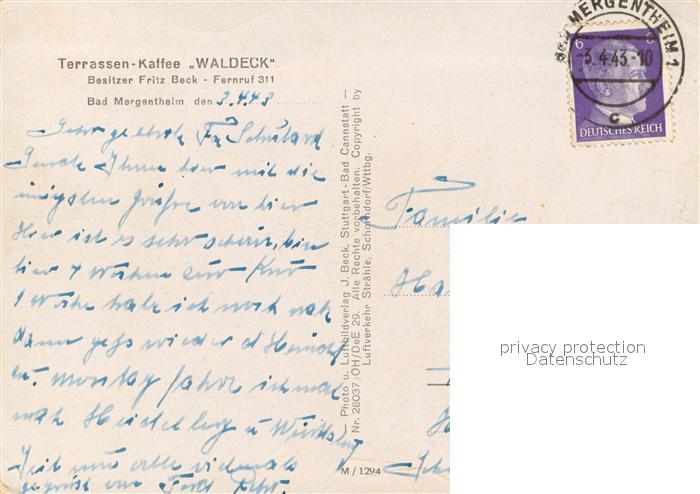 Terrassen-Kaffee „WALDECK"
Besitzer Fritz Beck - Fernruf 311
Bad Mergentheim, den 3.4.43
Sehr geehrte Fa
Sende Ihnen hier mit die
innigsten Grüße von hier
Hier ist es sehr schön, bin
hier 4 Wochen zur Kur
1 Woche habe ich noch
dann gehts wieder d Heimat
u. Montag fahre ich mal
nach Heidelberg u
Seit nun alle vielmals
gegrüßt von
Photo u. Luftbildverlag J. Beck, Stuttgart-Bad Cannstatt —
Nr. 28037/OH/DeE 29. Alle Rechte vorbehalten. Copyright by
Luftverkehr Strähle, Schorndorf/Wttbg.
M/1294
MERGENTHEIM 1
-3.4.43.-10
c
6 6
DEUTSCHES REICH
Familie
Ha
privacy protection
Datenschutz